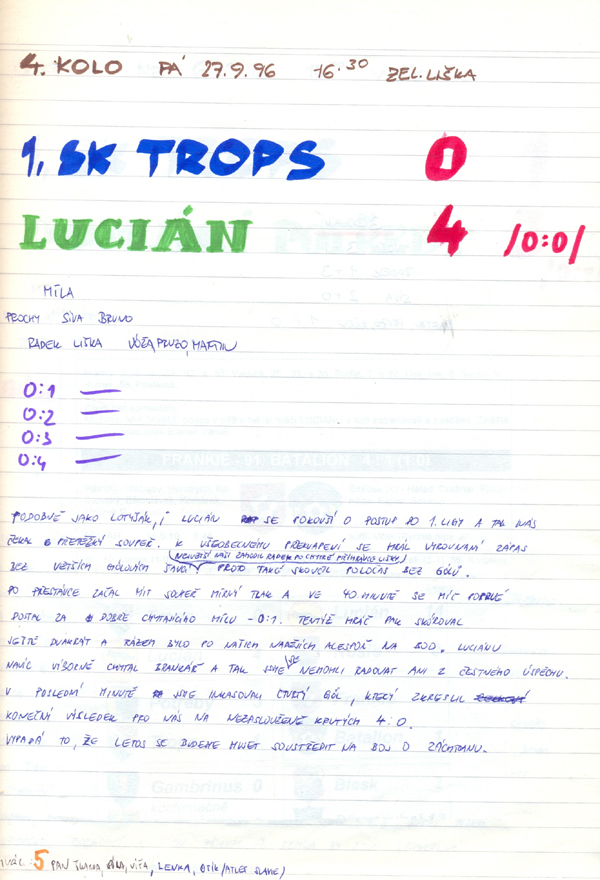 4. KOLO PÁ 27.9.96 16.30 ZEL. LIŠKA
1. SK TROPS 0
LUCIÁN 4 /0:0/
MÍLA
PROCHY SIVA BRUNO
RADEK LIŠKA VÓŽA, PRUZO, MARTIN
0:1 —
0:2 —
0:3 —
0:4 —
PODOBNĚ JAKO LOTYŠÁK, I LUCIÁN SE POKOUŠÍ O POSTUP DO 1. LIGY A TAK NÁS
ČEKAL PŘETĚŽKÝ SOUPEŘ. K VŠEOBECNÉMU PŘEKVAPENÍ SE HRÁL VYROVNANÝ ZÁPAS
(NEJVĚTŠÍ NAŠI ZAHODIL RADEK PO CHYTRÉ PŘIHRÁVCE LIŠKY)
BEZ VĚTŠÍCH GÓLOVÝCH ŠANCÍ PROTO TAKÉ SKONČIL POLOČAS BEZ GÓLŮ.
PO PŘESTÁVCE ZAČAL MÍT SOUPEŘ MÍRNÝ TLAK A VE 40 MINUTĚ SE MÍČ POPRVÉ
DOSTAL ZA DOBŘE CHYTAJÍCÍHO MÍLU - 0:1. TENTÝŽ HRÁČ PAK SKÓROVAL
JEŠTĚ DVAKRÁT A RÁZEM BYLO PO NAŠICH NADĚJÍCH ALESPOŇ NA BOD. LUCIÁNU
NAVÍC VÝBORNĚ CHYTAL BRANKÁŘ A TAK JSME SE NEMOHLI RADOVAT ANI Z ČESTNÉHO ÚSPĚCHU.
V POSLEDNÍ MINUTĚ JSME INKASOVALI ČTVRTÝ GÓL, KTERÝ ZKRESLIL
KONEČNÝ VÝSLEDEK PRO NÁS NA NEZASLOUŽENĚ KRUTÝCH 4:0.
VYPADÁ TO, ŽE LETOS SE BUDEME MUSET SOUSTŘEDIT NA BOJ O ZÁCHRANU.
5 PAN TLAMA, VÍŤA, LENKA, OTÍK
FRANKIE - 91. BATALION 4:1 (1:0)
Gambrinus 0
Blesk
Batalion 1
Potřeby